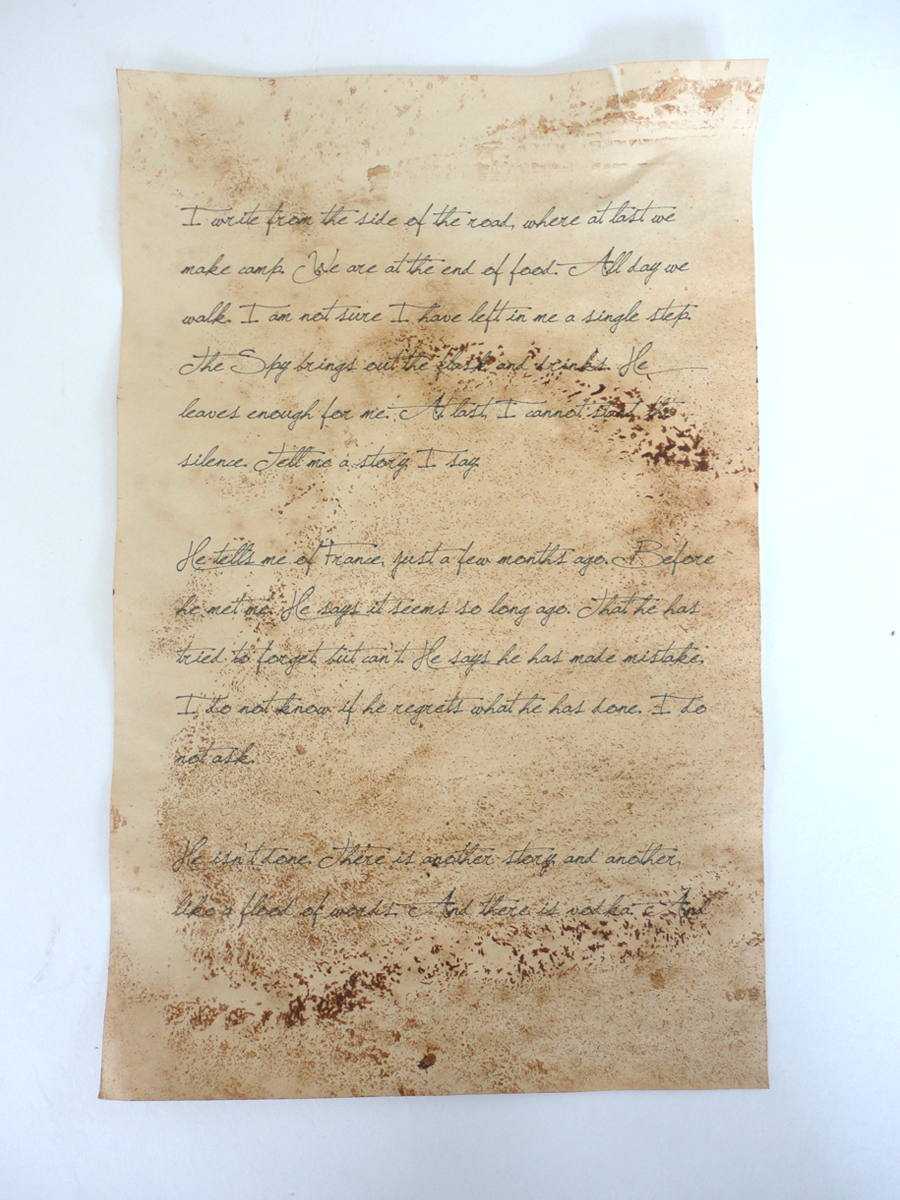 I write from the side of the road, where at last we
make camp. We are at the end of food. All day we
walk. I am not sure I have left in me a single step.
The Spy brings out the flask and drinks. He
leaves enough for me. At last, I cannot stand the
silence. Tell me a story, I say.
He tells me of France, just a few months ago. Before
he met me. He says it seems so long ago. That he has
tried to forget, but can't. He says he has made mistake.
I do not know if he regrets what he has done. I do
not ask.
He isn't done. There is another story, and another,
like a flood of words. And there is vodka. And